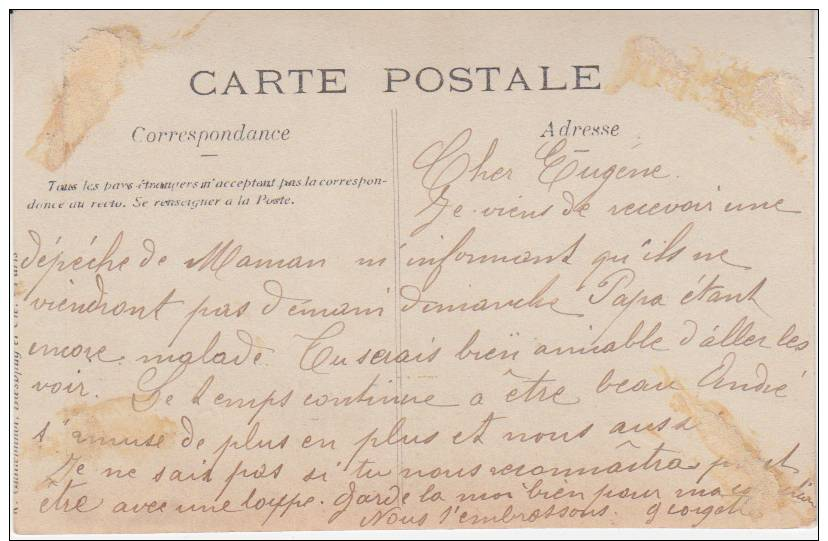 CARTE POSTALE
Correspondance
Adresse
Tous les pays étrangers n'acceptent pas la correspon-
dance au recto. Se renseigner à la Poste.
Cher Eugène.
Je viens de recevoir une
dépéche de Maman m'informant qu'ils ne
viendront pas demain dimanche Papa étant
encore malade Tu serais bien aimable d'aller les
voir. Le temps continue a être beau André
s'amuse de plus en plus et nous aussi
Je ne sais pas si tu nous reconnaîtras
être avec une loupe. garde la moi bien pour ma
Nous t'embrassons.